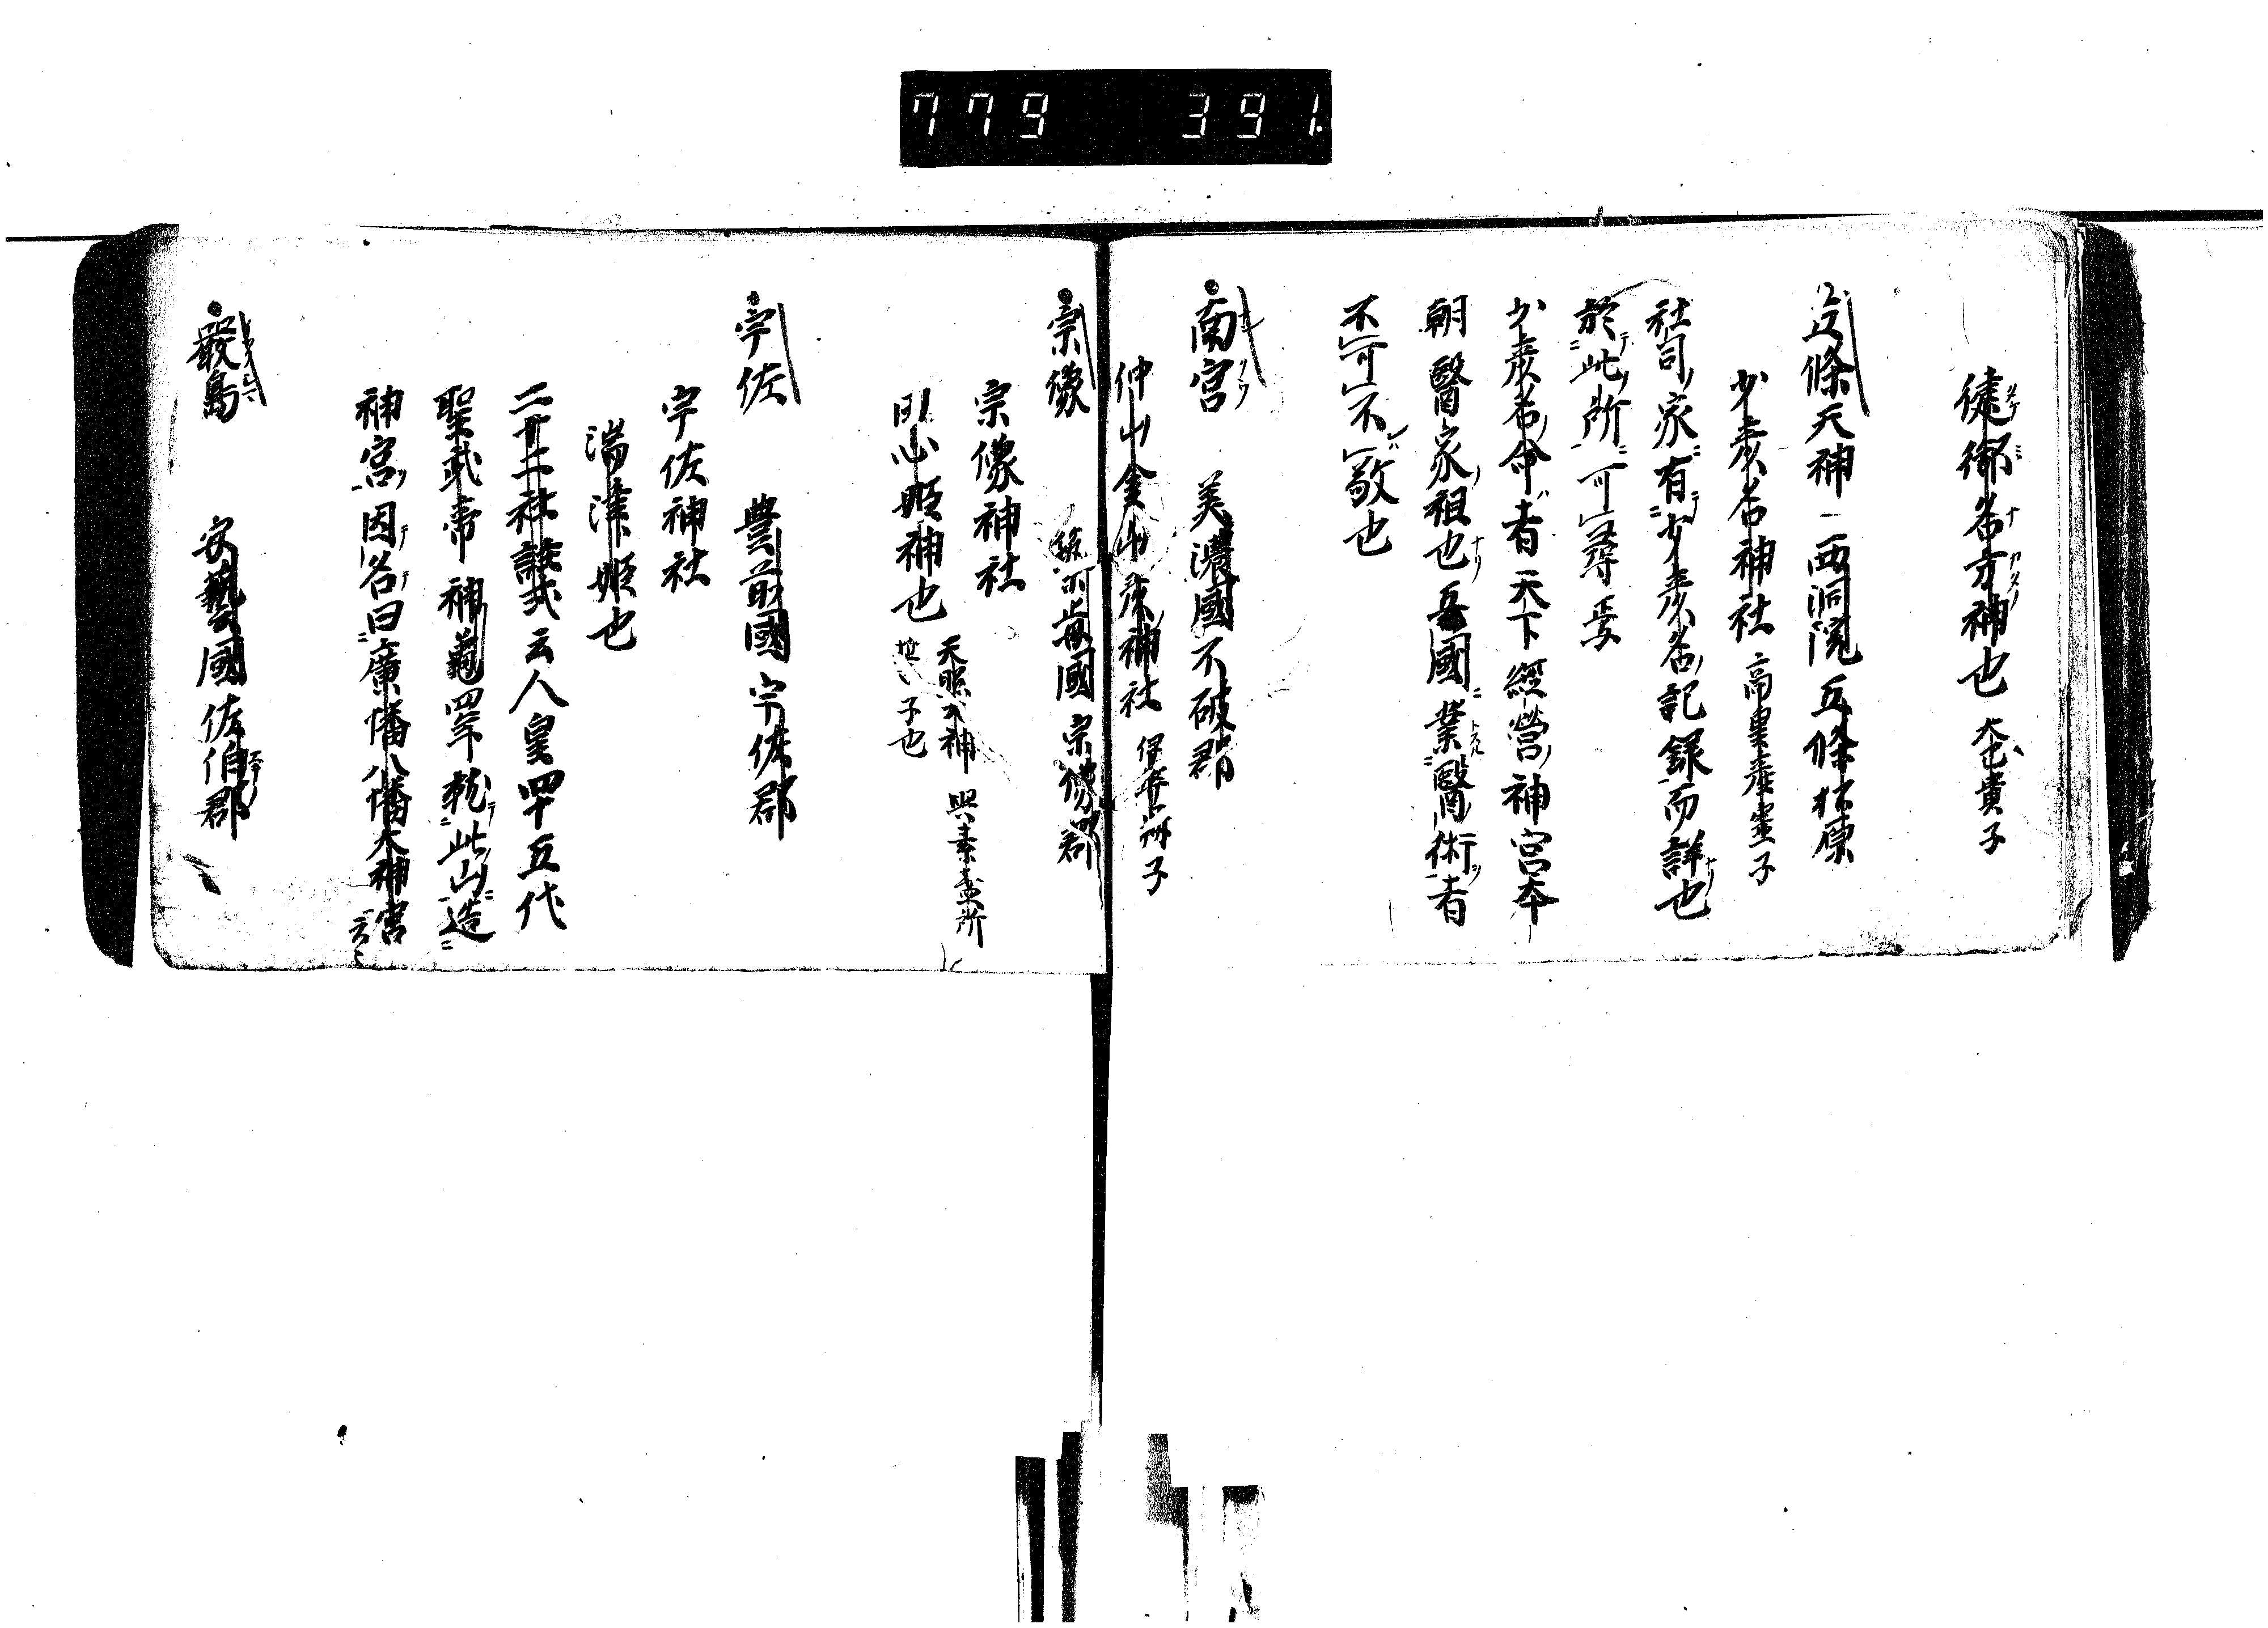 779 391
健御名方神也 大己貴子
五條天神 西洞院五條松原
少彦名神社 高皇産霊子
社司家有少彦名記録而詳也
於此所可尋焉
少彦名命者天下經營神宮本
朝醫家祖也吾國業醫術者
不可不敬也
南宮 美濃國不破郡
仲山金山彦神社 伊弉
子
宗像 國宗像郡
宗像神社
心姫神也 天照大神與素盞
所
子也
宇佐 豊前國宇佐郡
宇佐神社
湍津姫也
二十二社註式云人皇四十五代
聖武帝神龜四年乾此山造
神宮因名曰廣幡八幡大神宮云々
嚴島 安藝國佐伯郡